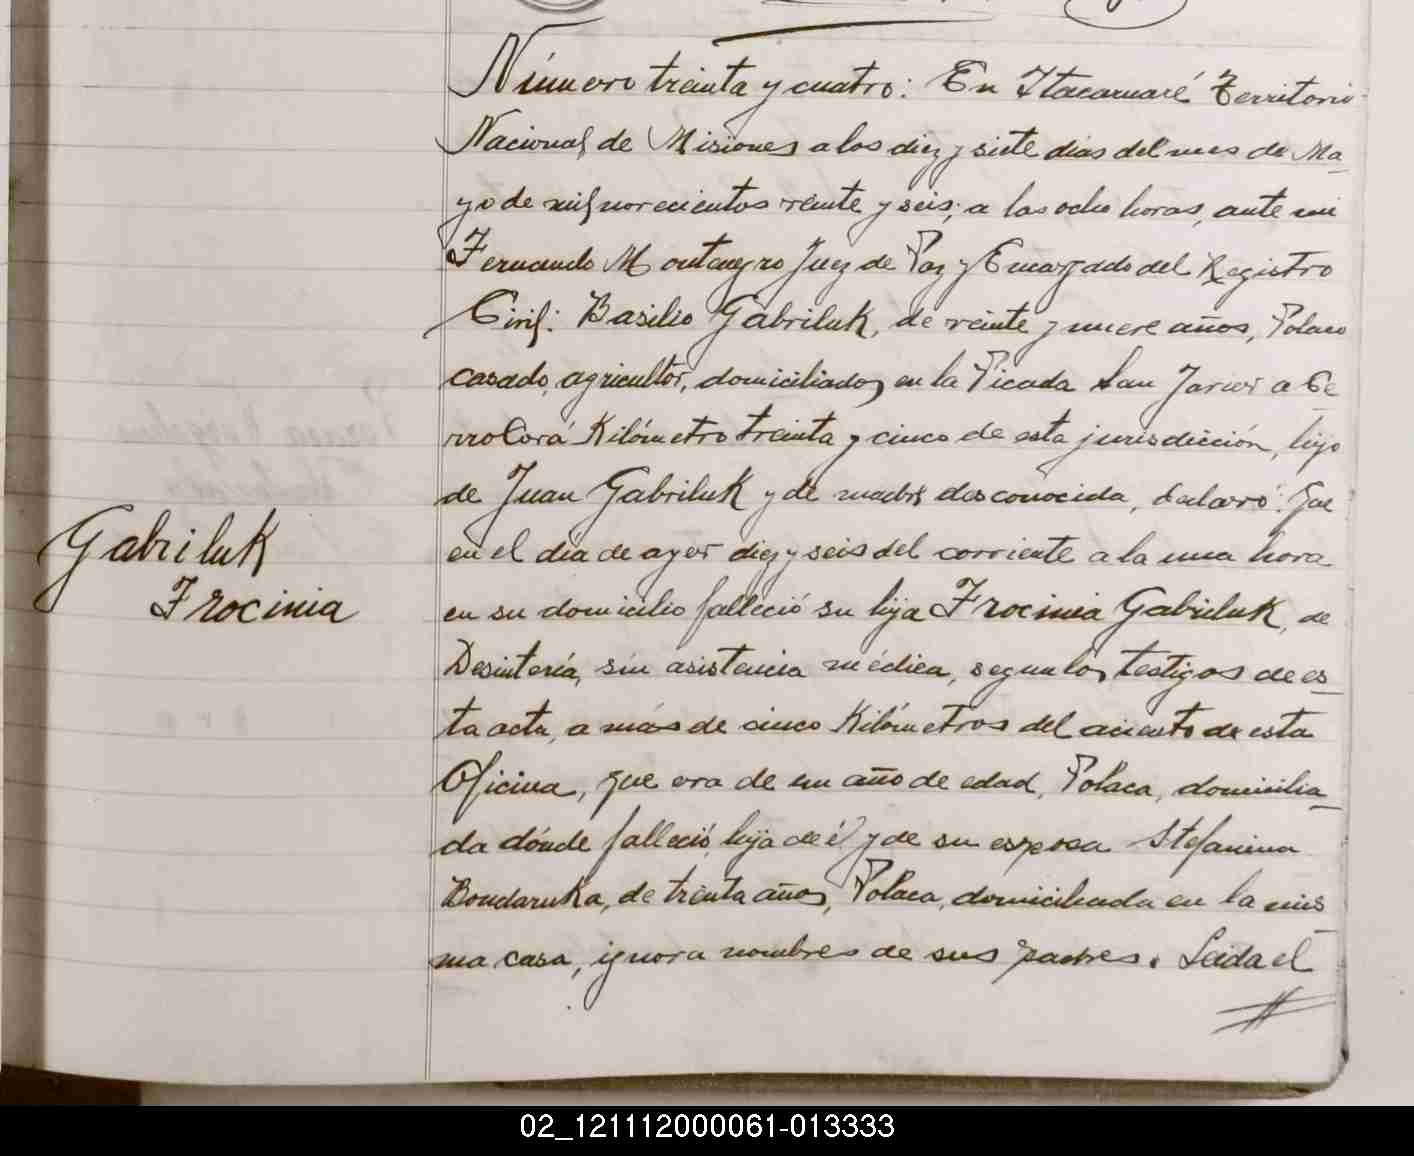 Número treinta y cuatro: En Itacaruaré Territorio
Nacional de Misiones a los diez y siete dias del mes de Ma_
yo de mil novecientos veinte y seis, a las ocho horas, ante mi
Fernando Montenegro Juez de Paz y Encargado del Registro
Civil: Basilio Gabriluk, de veinte y nueve años, Polaco
casado, agricultor, domiciliado, en la Picada San Javier a Ce
rro Corá Kilómetro treinta y cinco de esta jurisdicción, hijo
de Juan Gabriluk y de madre desconocida, declaró: Que
en el dia de ayer diez y seis del corriente a la una hora
Gabriluk
en su domicilio falleció su hija Frocinia Gabriluk, de
Frocinia
Desintería, sin asistencia médica, segun los testigos de es_
ta acta, a más de cinco Kilómetros del aciento de esta
Oficina, que era de un año de edad, Polaca, domicilia_
da dónde falleció, hija de él y de su esposa Stefanina
Bondaruka, de treinta años, Polaca, domiciliada en la mis_
ma casa, ignora nombres de sus padres. Leida el
02_121112000061-013333